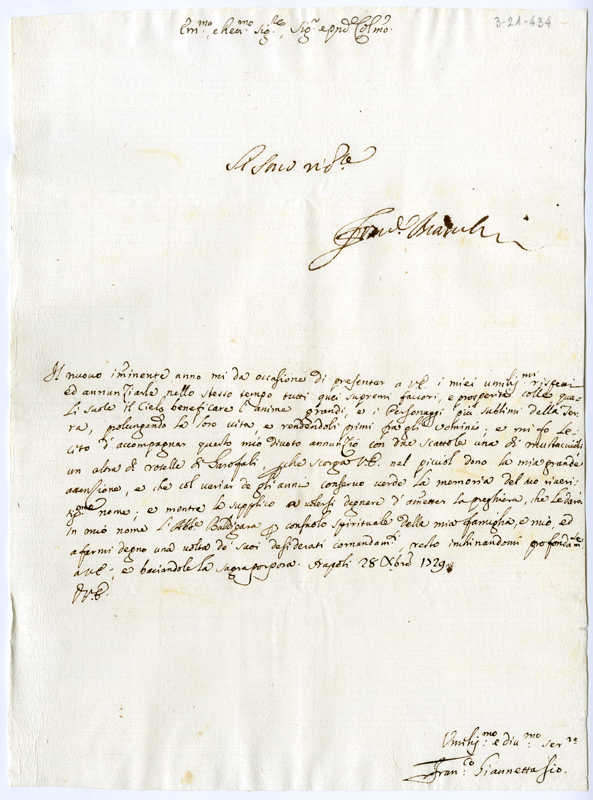 3-21-434
Em.mo, e Rev.mo Sig.re, Sig.r e pñd Col.mo
Il nuovo im̃inente anno mi dà occasione di presentar a V.E. i miei umiliss.mi rispetti
ed annunziarle nello stesso tempo tutti quei supremi favori, e prosperità colle qua-
li suole il Cielo beneficare l'anime grandi, e i Personaggi più sublimi della Ter-
ra, prolungando la loro vita, e rendendoli primi fra gl'uomini; e mi fo le-
cito d'accompagnar questo mio divoto annunzio con due scattole una di mustaccioli
un altra di rotelle di Garofali, perche scorga V.E. nel picciol dono la mia grande
attenzione, e che col variar de gl'anni conservo verde la memoria del suo riveri-
nome; e mentre la supplico a volersi degnare d'am̃etter la preghiera, che le darà
in mio nome l'Abb.e confuolo Spirituale della mia famiglia, e mio, ed
a farmi degno una volta de' suoi desiderati comandam.ti resto inchinandomi profondam.te
a V.E.; e baciandole la sagra porpora. Napoli 28 Xbre 1729.
D.V.E.
Umiliss.mo e div.mo ser.re
Fran.co Giannettasio.